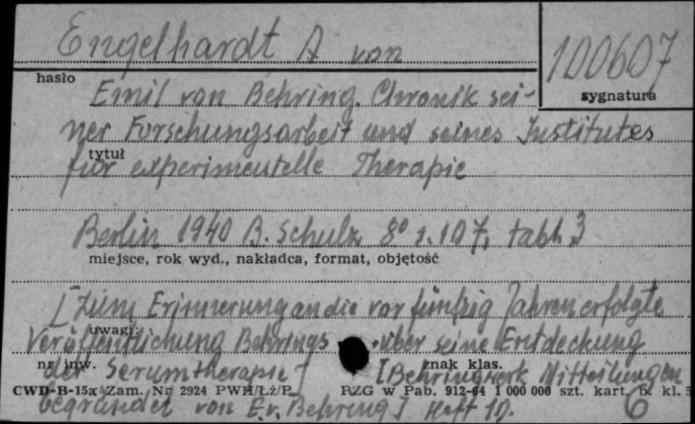 Engelhardt A von
100607
hasło
sygnatura
Emil von Behring. Chronik sei-
ner Forschungsarbeit und seines Institutes
tytuł
für experimentelle Therapie
Berlin 1940 B. Schulz 8° s. 107, tabl. 3
miejsce, rok wyd., nakładca, format, objętość
[Zum Erinnerung an die vor fünfzig Jahren erfolgte
uwagi:
Veröffentlichung Behrings über seine Entdeckung
nr inw.
znak klas.
der Serumtherapie] [Behringwerk Mitteilungen
CWD-B-15a Zam. Nr 2924 PWH/Łź/P RZG w Pab. 912-64 1 000 000 szt. kart. kl.
begründet von E.v. Behring] Heft 10.
6